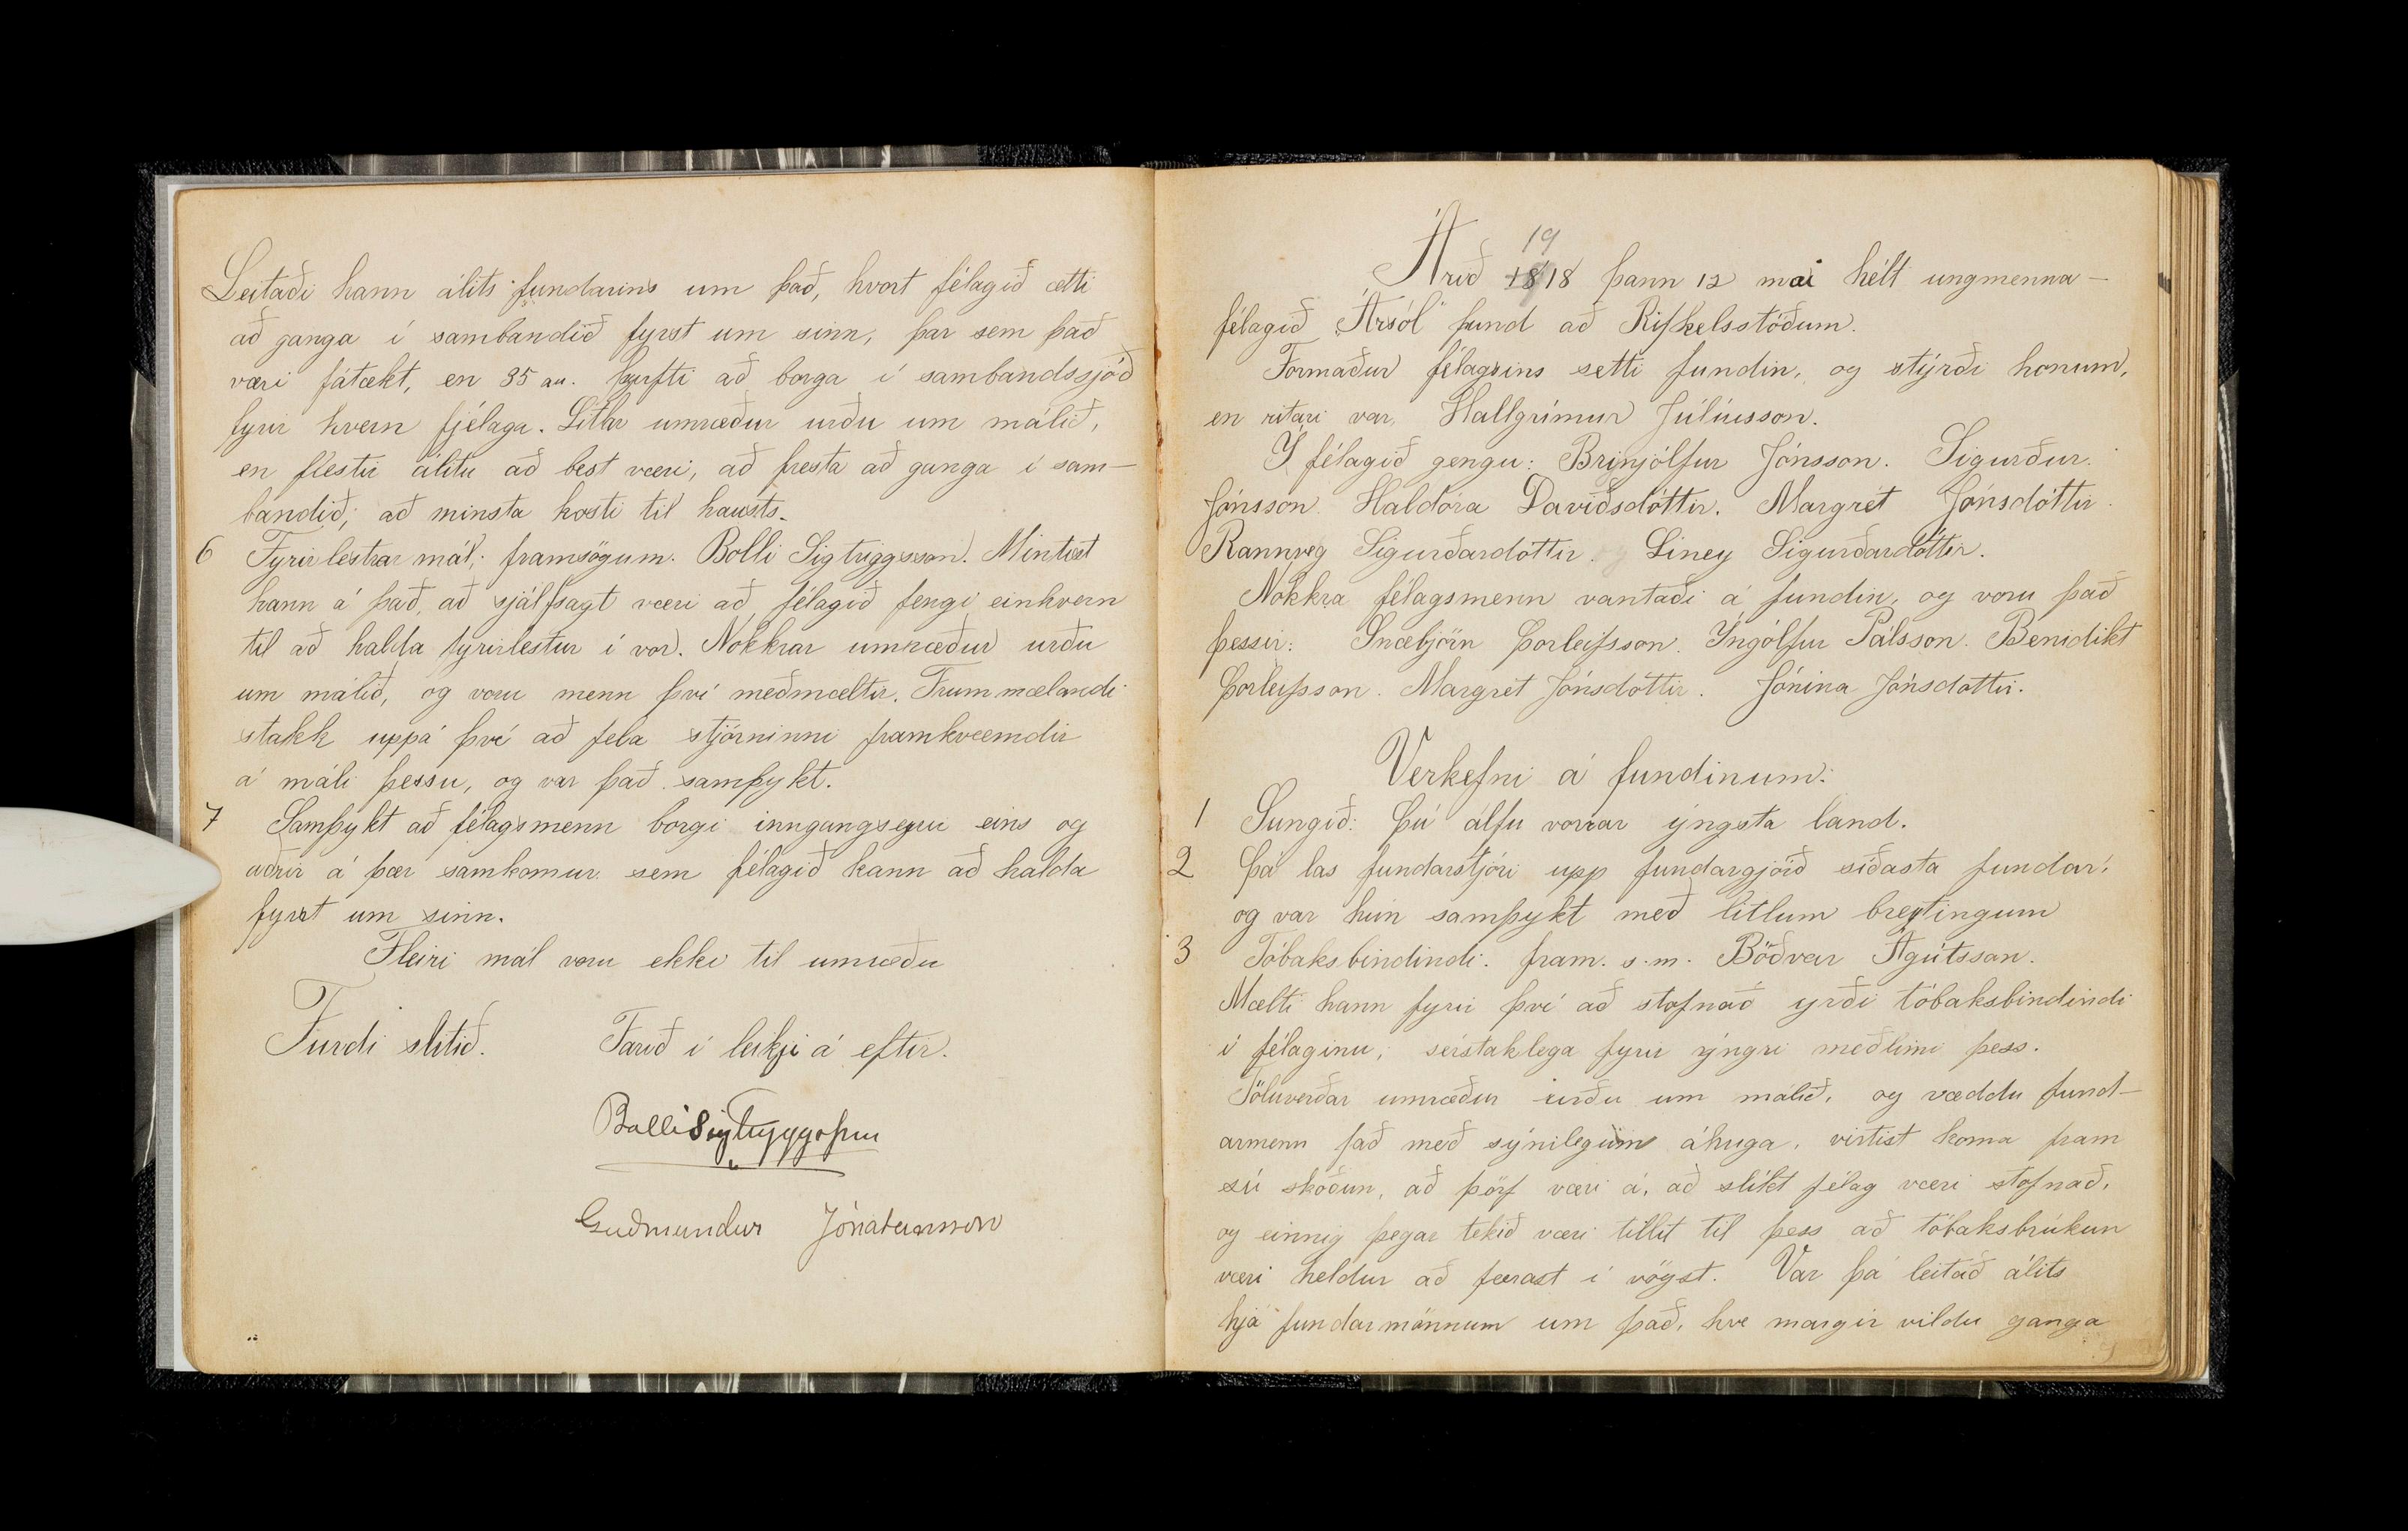 Leitaði hann álits fundarins um það, hvort félagið ætti
að ganga í sambandið fyrst um sinn, þar sem það
væri fátækt, en 35 au. þyrfti að borga í sambandssjóð
fyrir hvern fjélaga. Litlar umræður urðu um málið,
en flestir álitu að best væri, að fresta að ganga í sam-
bandið; að minsta kosti til hausts.
6 Fyrirlestrar mál; framsögum. Bolli Sigtriggsson. Mintist
hann á það, að sjálfsagt væri að félagið fengi einhvern
til að halda fyrirlestur í vor. Nokkrar umræður urðu
um málið, og voru menn því meðmæltir. Frummælandi
stakk uppá því að fela stjórninni framkvæmdir
á máli þessu, og var það samþykt.
7 Samþykt að félagsmenn borgi inngangseyri eins og
aðrir á þær samkomur sem félagið kann að halda
fyrst um sinn.
Fleiri mál voru ekki til umræðu
Fundi slitið. Farið í leikji á eftir.
Bolli Sigtryggsson
Guðmundur Jónatansson
19
Árið 1818 þann 12 mai hélt ungmenna-
félagið „Ársól" fund að Rifkelsstöðum.
Formaður félagsins setti fundin, og stýrði honum,
en ritari var, Hallgrímur Júlíusson.
Í félagið gengu: Brinjólfur Jónsson. Sigurður
Jónsson. Haldóra Davíðsdóttir. Margrét Jónsdóttir.
Rannveg Sigurðardóttir. Líney Sigurðardóttir.
Nokkra félagsmenn vantaði á fundin, og voru það
þessir: Snæbjörn Þorleifsson. Yngólfur Pálsson. Benidikt
Þorleifsson. Margrét Jónsdóttir. Jónína Jónsdóttir.
Verkefni á fundinum:
1 Sungið: Þú álfu vorrar ýngsta land.
2 Þá las fundarstjóri upp fundargjörð síðasta fundar;
og var hún samþykt með litlum breytingum
3 Tóbaksbindindi. fram. s.m. Böðvar Ágútsson.
Mælti hann fyrir því að stofnað yrði tóbaksbindindi
í félaginu, sérstaklega fyrir ýngri meðlimi þess.
Töluverðar umræður urðu um málið, og ræddu fund-
armenn það með sýnilegum áhuga, virtist koma fram
sú skoðun, að þörf væri á, að slíkt félag væri stofnað,
og einnig þegar tekið væri tillit til þess að tóbaksbrúkun
væri heldur að færast í vögst. Var þá leitað álits
hjá fundarmönnum um það, hve margir vildu ganga